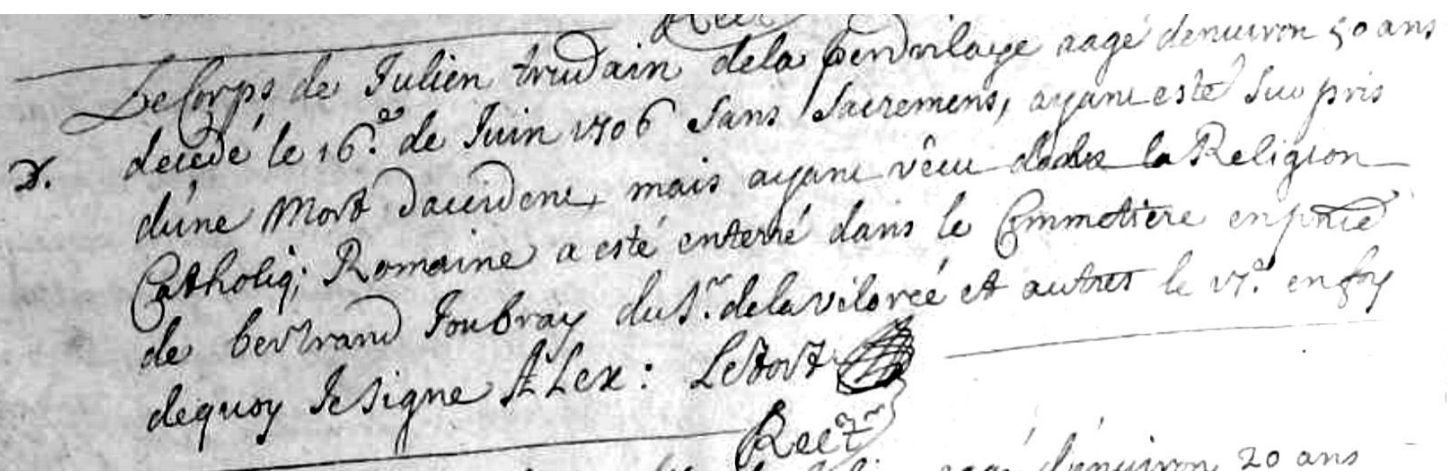 Rect
Le Corps de Julien trudain dela pendvilaye aagé denuiron 50 ans
D. decedé le 16.e de Juin 1706 sans sacremens, ayant esté surpris
dúne Mort daccidene, mais ayant vêcu dans la Religion
Catholiq; Romaine a esté enterré dans le Cimmetiere en pnce
de bertrand Joubray du Sr. delaviloreé et autres le 17.e en foy
dequoy Je signe Alex: Letort
Rectr
aagé d'énuiron 20 ans